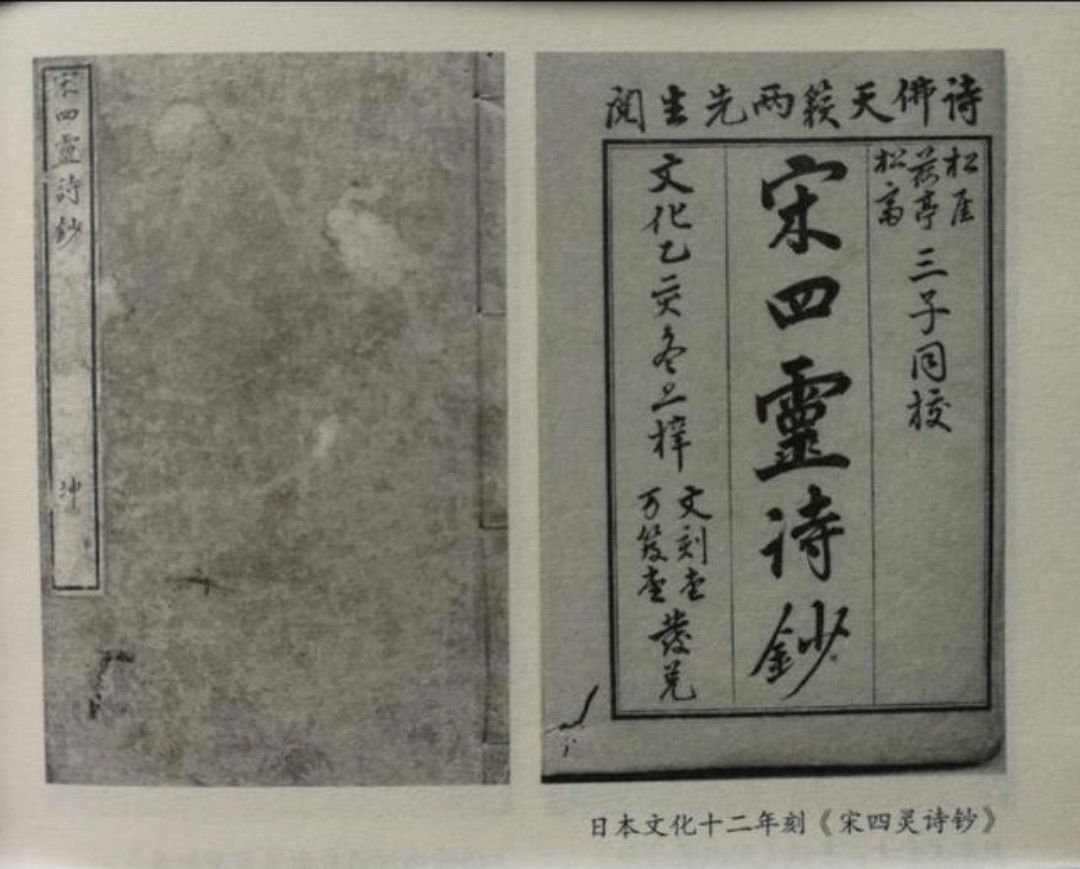 宋四靈詩鈔
坤
詩佛天籟兩先生閱
松崖
菘亭
松齋
三子同校
宋四靈詩鈔
文化乙亥冬上梓
文刻堂
万笈堂
發兌
日本文化十二年刻《宋四灵诗钞》